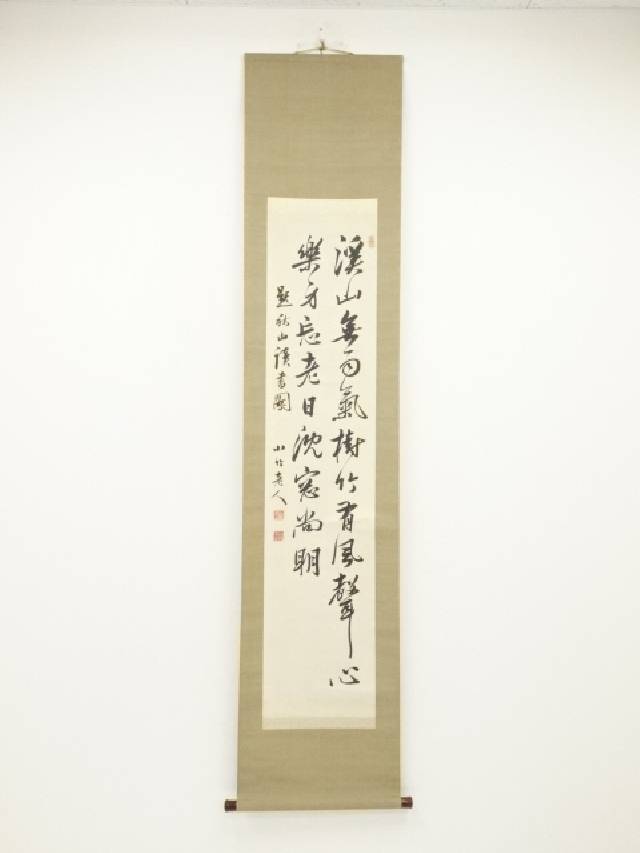 溪山無雨氣樹竹有風聲心
樂身忘老日沈窓尚明
題秋山讀書圖
山竹老人